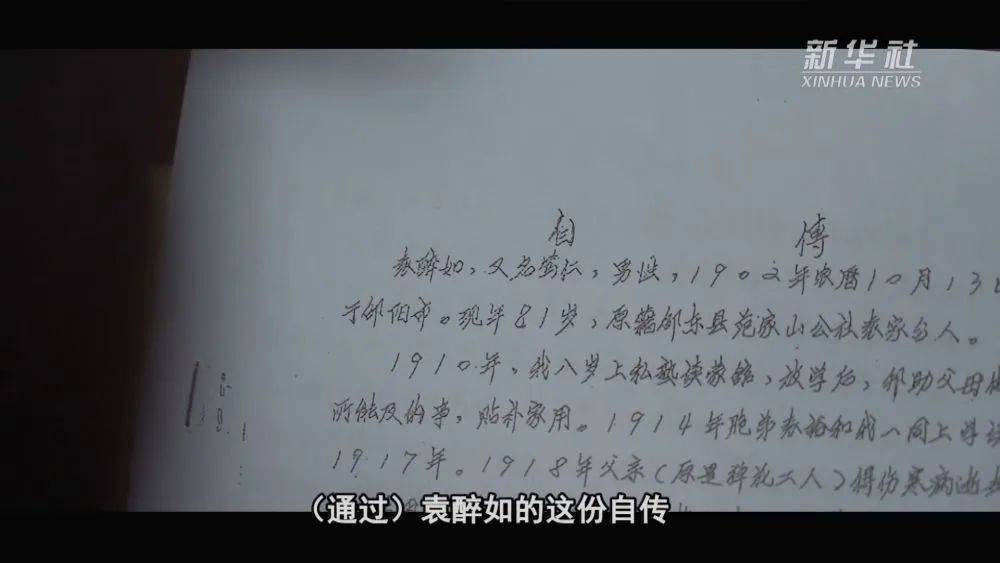 新华社
XINHUA NEWS
自 傅
袁醉如，又名 仁，男性，1902年农曆10月13
于邵阳市。现年81岁，原籍邵东县范家山公社袁家 人。
1910年，我八岁上私塾读蒙馆，放学后，帮助父母做
所能及的事，贴补家用。1914年胞弟袁 和我一同上学
1917年。1918年父亲（原是 工人）得伤寒病逝
（通过）袁醉如的这份自传